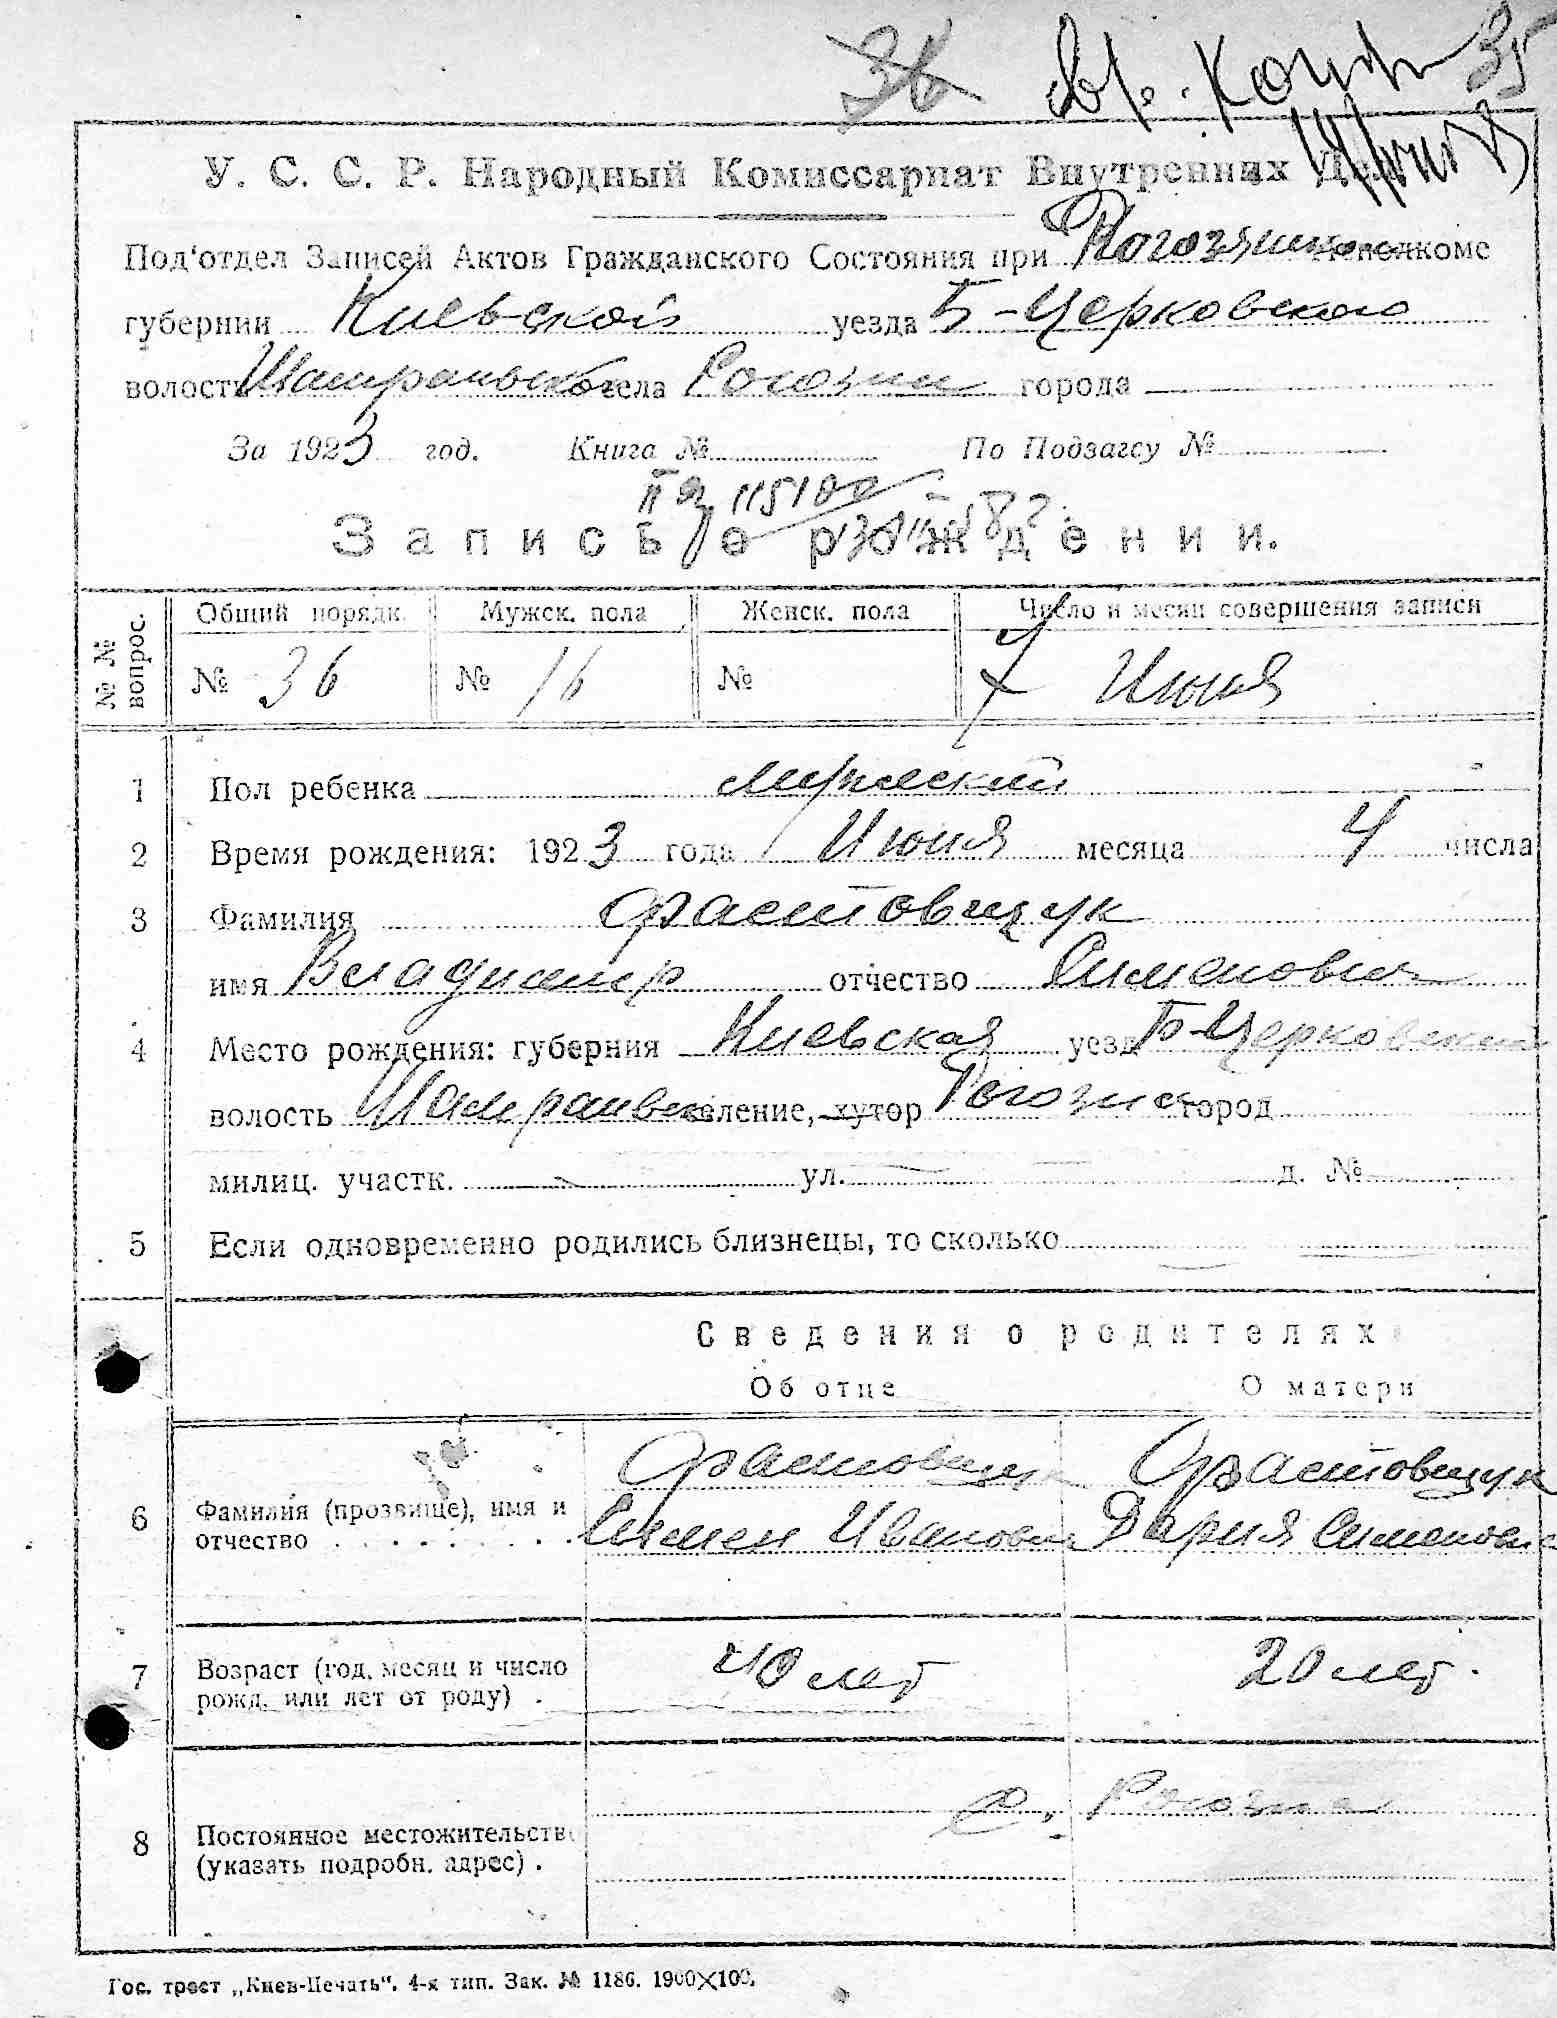 36 35
У. С. С. Р. Народный Комиссариат Внутренних Дел
Под'отдел Записей Актов Гражданского Состояния при исполкоме
губернии Киевской уезда Б-Церковского
волость села города
За 1923 год. Книга № По Подзагсу №
II 115100
Запись о рождении.
№ № вопрос. Общий порядк. Мужск. пола Женск. пола Число и месяц совершения записи
№ 36 № 16 № 7 Июня
1 Пол ребенка мужеский
2 Время рождения: 1923 года Июня месяца 4 числа
3 Фамилия Фастовщук
имя Владимир отчество Сименович
4 Место рождения: губерния Киевская уезд Б-Церковский
волость селение, хутор Рогозна город
милиц. участк. ул. д. №
5 Если одновременно родились близнецы, то сколько
Сведения о родителях
Об отце О матери
Фастовщук Фастовщук
6 Фамилия (прозвище), имя и отчество Симен Иванович Дария Сименовна
7 Возраст (год, месяц и число рожд. или лет от роду) 40 лет 20 лет.
с. Рогозна
8 Постоянное местожительство (указать подробн. адрес).
Гос. трест „Киев-Печать“. 4-я тип. Зак. № 1186. 1900×100.